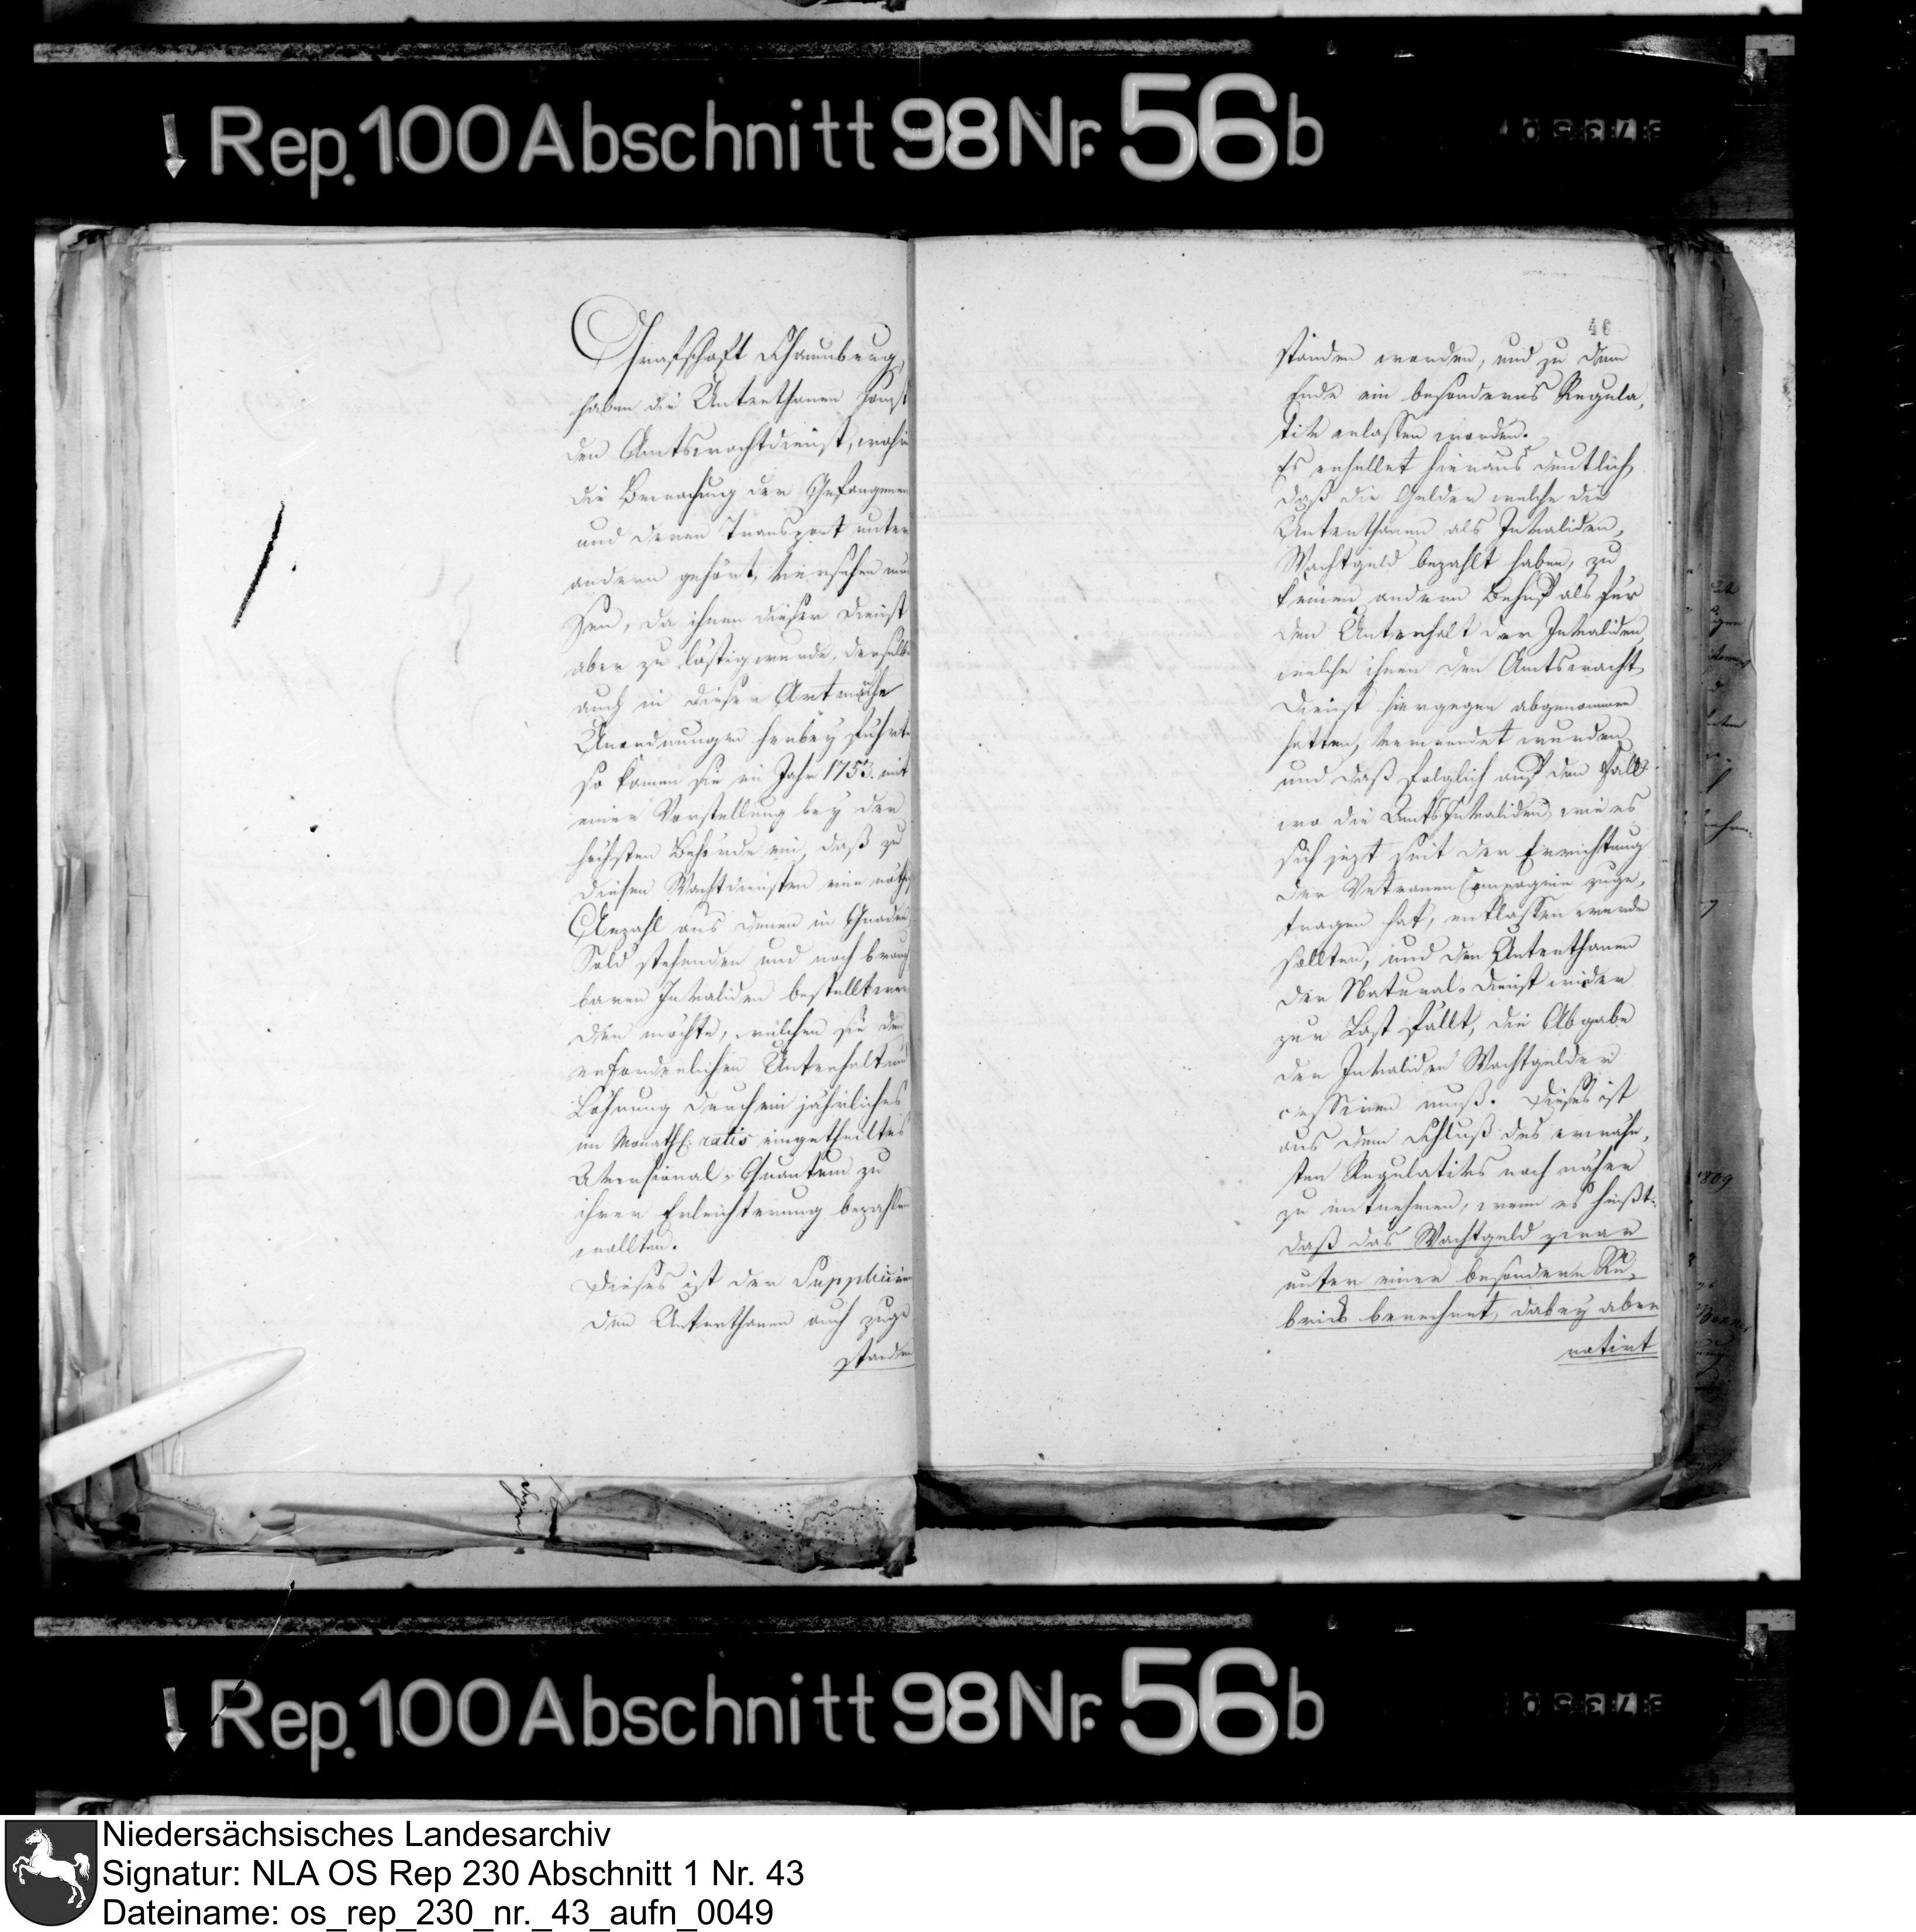 Rep. 100 Abschnitt 98 Nr. 56 b
Grafschaft Schaumburg,
haben die Unterthanen sonst
den Amtswachtdienst, wohin
die Bewachung der Gefangenen
und deren Transport unter
andern gehört, versehen müs
sen, da ihnen dieser Dienst
aber zu lästig wurde, derselbe
auch in dieser Art manche
Unordnungen herbey führte
so kamen sie im Jahr 1753. mit
einer Vorstellung bey der
höchsten Behörde ein, daß zu
diesen Wachtdiensten eine
Anzahl aus denen in Gnaden
Sold stehenden und noch brauch
baren Invaliden bestellt wer
den möchte, welchen sie den
erforderlichen Unterhalt und
Löhnung durch ein jährliches
in Monathl: ratis eingetheiltes
Aversional-Quantum zu
ihrer Erleichterung bezahlen
wollten.
Dieses ist den Suppliciren
den Unterthanen auch zuge
standen
46
standen worden, und zu dem
Ende ein besonderes Regula,
tiv erlassen worden.
Es erhellet hieraus deutlich,
daß die Gelder welche die
Unterthanen als Invaliden,
Wachtgeld bezahlt haben, zu
keinem andern Behuf als für
den Unterhalt der Invaliden,
welche ihnen den Amtswacht
Dienst hiergegen abgenommen
hatten, verwendet wurden
und daß folglich auf den Fall
wo die Amts Invaliden, wie es
sich jezt seit der Errichtung
der Vetranen Compagnie zuge,
tragen hat, entlassen werden
sollten, und den Unterthanen
der Natural-Dienst wieder
zur Last fällt, die Abgabe
der Invaliden Wachtgelder
cessiren muß. Dieses ist
aus dem Schluß des erwähn,
ten Regulativs noch näher
zu entnehmen, wenn es heißt:
daß das Wachtgeld zwar
unter einer besondern Ru,
brick berechnet, dabey aber
notirt
1809
Rep. 100 Abschnitt 98 Nr. 56 b
Niedersächsisches Landesarchiv
Signatur: NLA OS Rep 230 Abschnitt 1 Nr. 43
Dateiname: os_rep_230_nr._43_aufn_0049